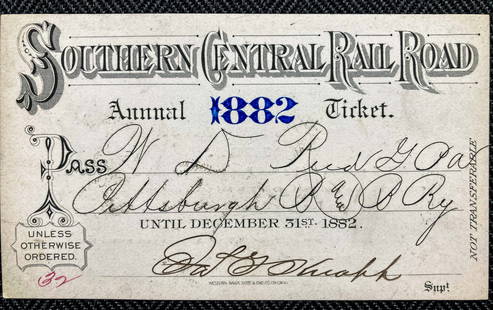 SOUTHERN CENTRAL RAIL ROAD
Annual 1882 Ticket.
PASS W D Reid G Pa
Pittsburgh R Ry
UNTIL DECEMBER 31ST. 1882.
UNLESS
OTHERWISE
ORDERED.
32
NOT TRANSFERABLE
Knapp
Supt